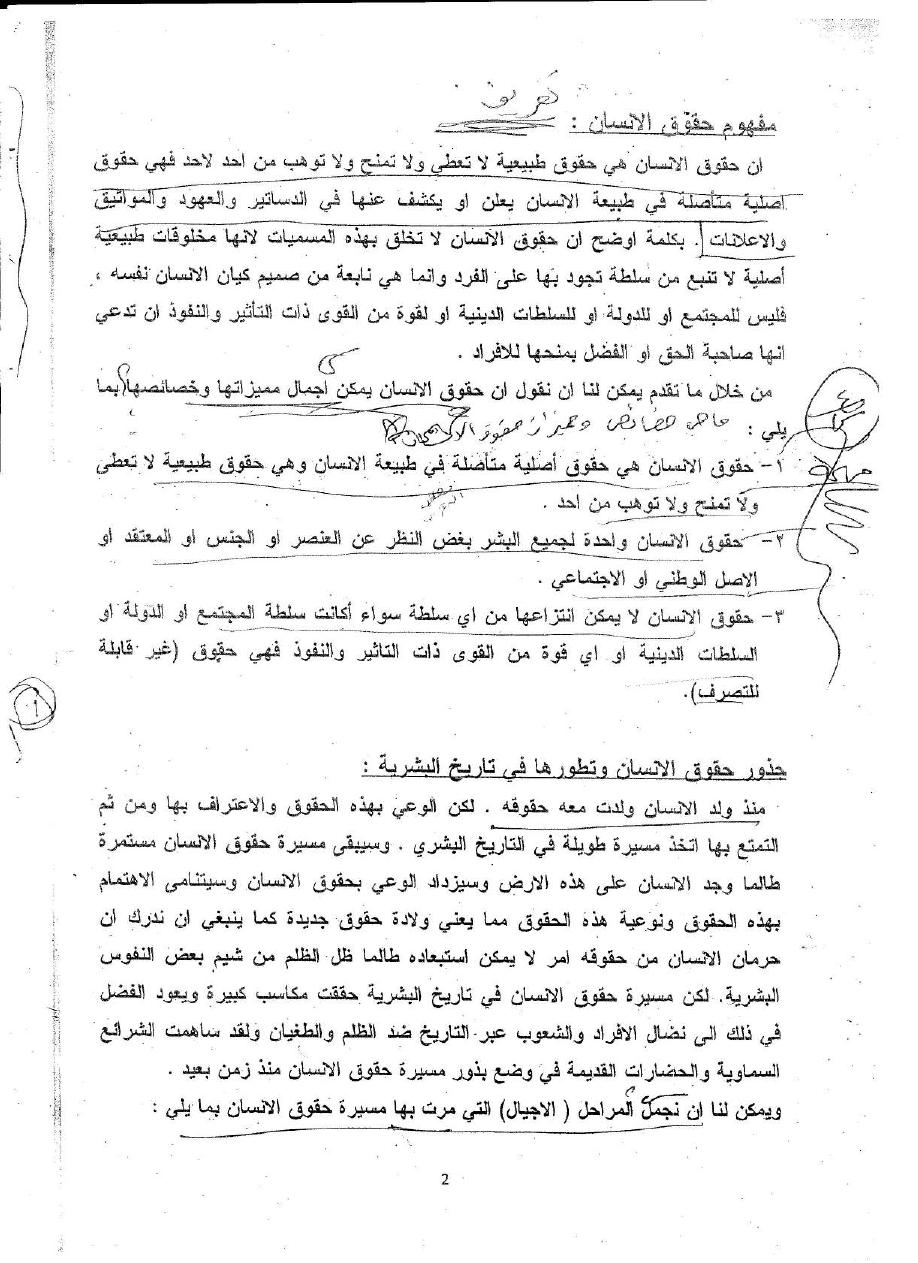 تعريف
مفهوم حقوق الانسان :
ان حقوق الانسان هي حقوق طبيعية لا تعطى ولا تمنح ولا توهب من احد لاحد فهي حقوق
اصلية متأصلة في طبيعة الانسان يعلن او يكشف عنها في الدساتير والعهود والمواثيق
والاعلانات . بكلمة اوضح ان حقوق الانسان لا تخلق بهذه المسميات لانها مخلوقات طبيعية
أصلية لا تنبع من سلطة تجود بها على الفرد وانما هي نابعة من صميم كيان الانسان نفسه ،
فليس للمجتمع او للدولة او للسلطات الدينية او لقوة من القوى ذات التأثير والنفوذ ان تدعي
انها صاحبة الحق او الفضل بمنحها للافراد .
من خلال ما تقدم يمكن لنا ان نقول ان حقوق الانسان يمكن اجمال مميزاتها وخصائصها بما
يلي : ماهي خصائص ومميزات حقوق الانسان
١- حقوق الانسان هي حقوق أصلية متأصلة في طبيعة الانسان وهي حقوق طبيعية لا تعطى
ولا تمنح ولا توهب من احد .
٢- حقوق الانسان واحدة لجميع البشر بغض النظر عن العنصر او الجنس او المعتقد او
الاصل الوطني او الاجتماعي .
٣- حقوق الانسان لا يمكن انتزاعها من اي سلطة سواء أكانت سلطة المجتمع او الدولة او
السلطات الدينية او اي قوة من القوى ذات التاثير والنفوذ فهي حقوق (غير قابلة
للتصرف).
جذور حقوق الانسان وتطورها في تاريخ البشرية :
منذ ولد الانسان ولدت معه حقوقه . لكن الوعي بهذه الحقوق والاعتراف بها ومن ثم
التمتع بها اتخذ مسيرة طويلة في التاريخ البشري . وسيبقى مسيرة حقوق الانسان مستمرة
طالما وجد الانسان على هذه الارض وسيزداد الوعي بحقوق الانسان وسيتنامى الاهتمام
بهذه الحقوق ونوعية هذه الحقوق مما يعني ولادة حقوق جديدة كما ينبغي ان ندرك ان
حرمان الانسان من حقوقه امر لا يمكن استبعاده طالما ظل الظلم من شيم بعض النفوس
البشرية. لكن مسيرة حقوق الانسان في تاريخ البشرية حققت مكاسب كبيرة ويعود الفضل
في ذلك الى نضال الافراد والشعوب عبر التاريخ ضد الظلم والطغيان ولقد ساهمت الشرائع
السماوية والحضارات القديمة في وضع بذور مسيرة حقوق الانسان منذ زمن بعيد .
ويمكن لنا ان نجمل المراحل ( الاجيال) التي مرت بها مسيرة حقوق الانسان بما يلي :
2